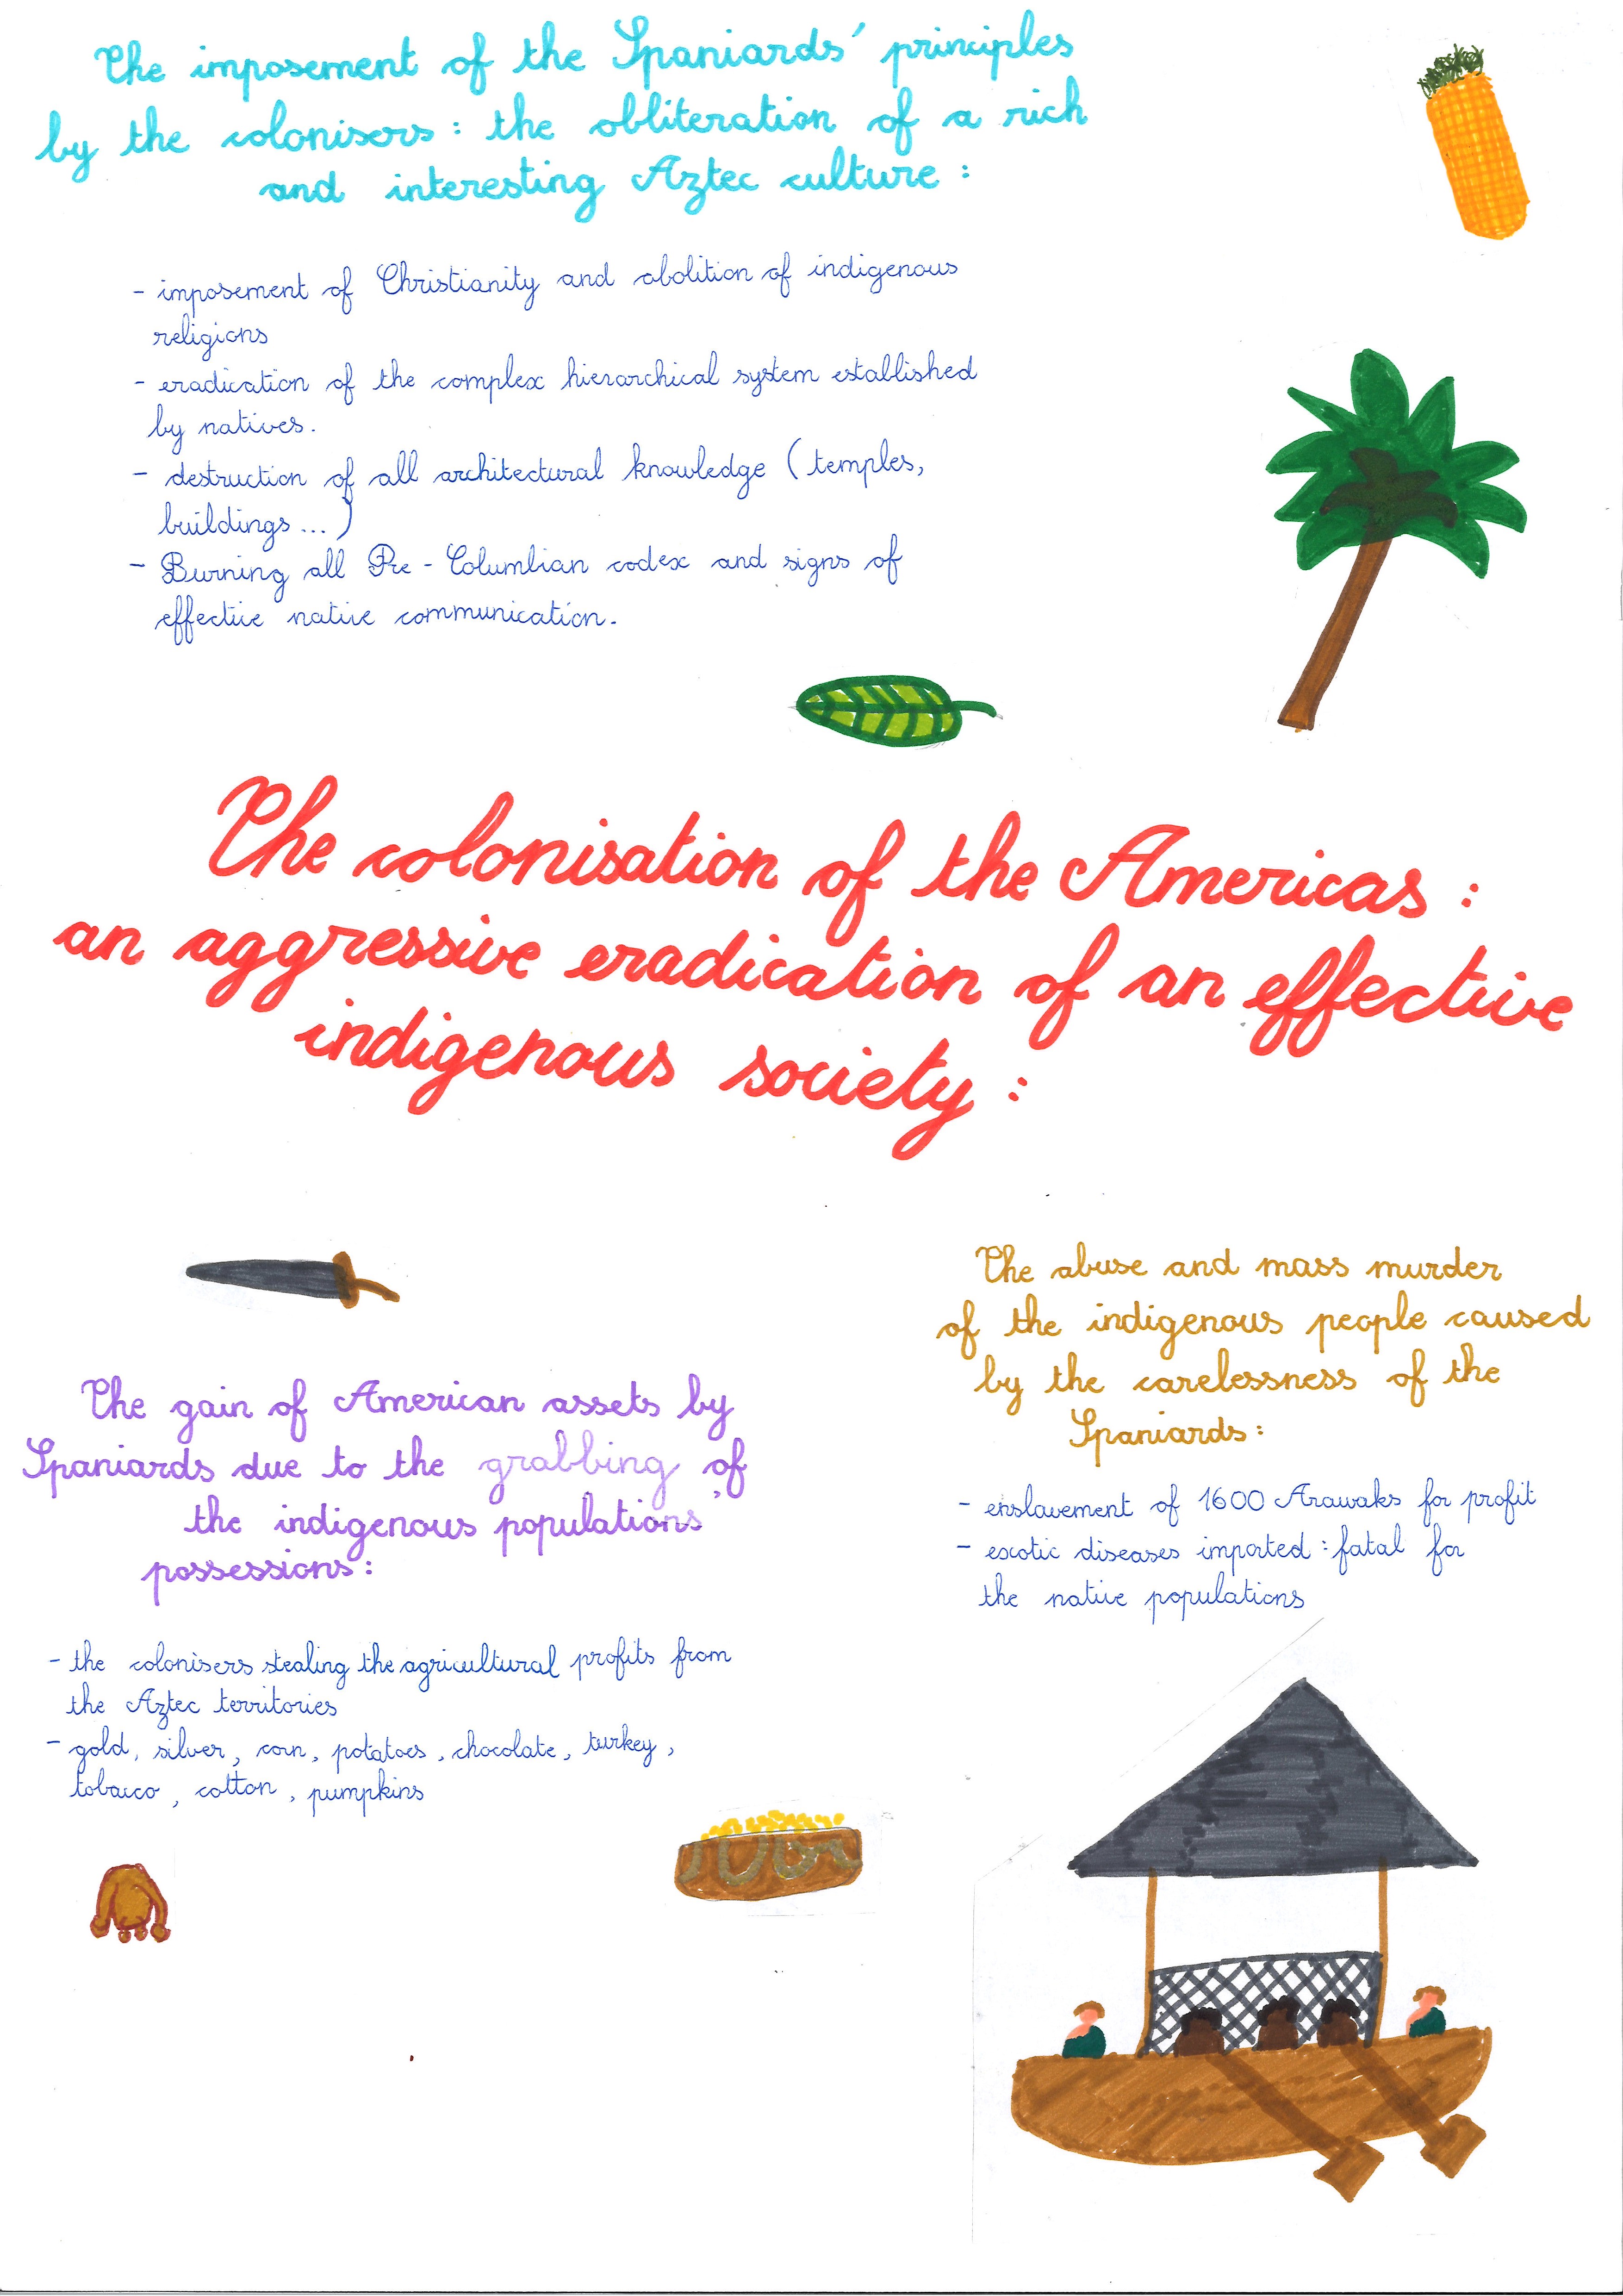 The imposement of the Spaniards' principles
by the colonisers : the obliteration of a rich
and interesting Aztec culture :
- imposement of Christianity and abolition of indigenous
religions
- eradication of the complex hierarchical system established
by natives.
- destruction of all architectural knowledge (temples,
buildings ...)
- Burning all Pre-Columbian codex and signs of
effective native communication.
The colonisation of the Americas :
an aggressive eradication of an effective
indigenous society :
The gain of American assets by
Spaniards due to the grabbing of
the indigenous populations'
possessions :
- the colonisers stealing the agricultural profits from
the Aztec territories
- gold, silver, corn, potatoes, chocolate, turkey,
tobacco, cotton, pumpkins
The abuse and mass murder
of the indigenous people caused
by the carelessness of the
Spaniards :
- enslavement of 1600 Arawaks for profit
- exotic diseases imported : fatal for
the native populations